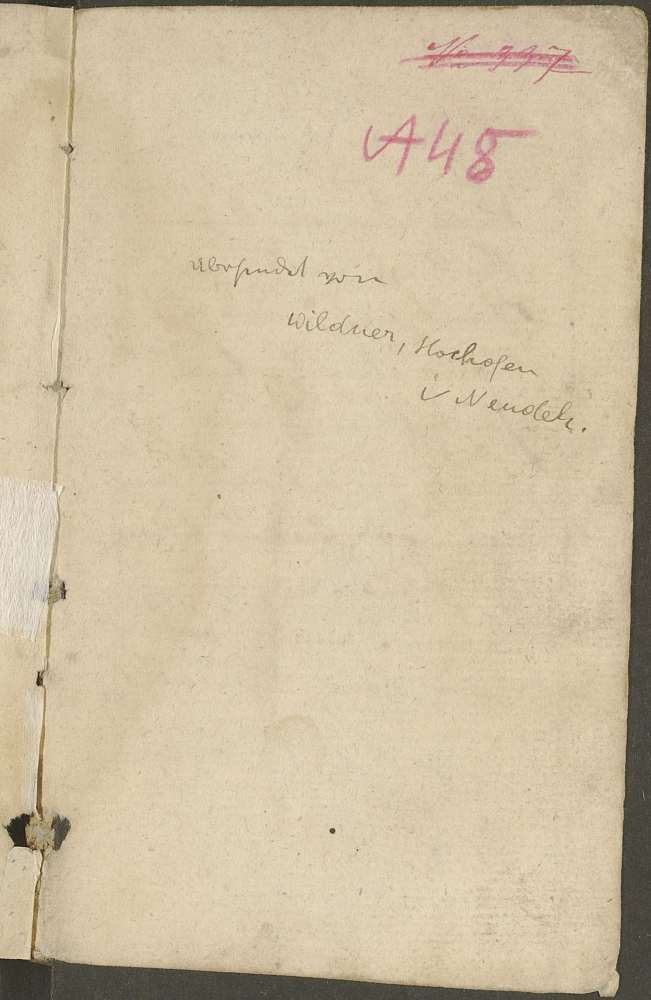 No 337
A48
übersendet von
Wildner, Hochofen
b/ Neudek.